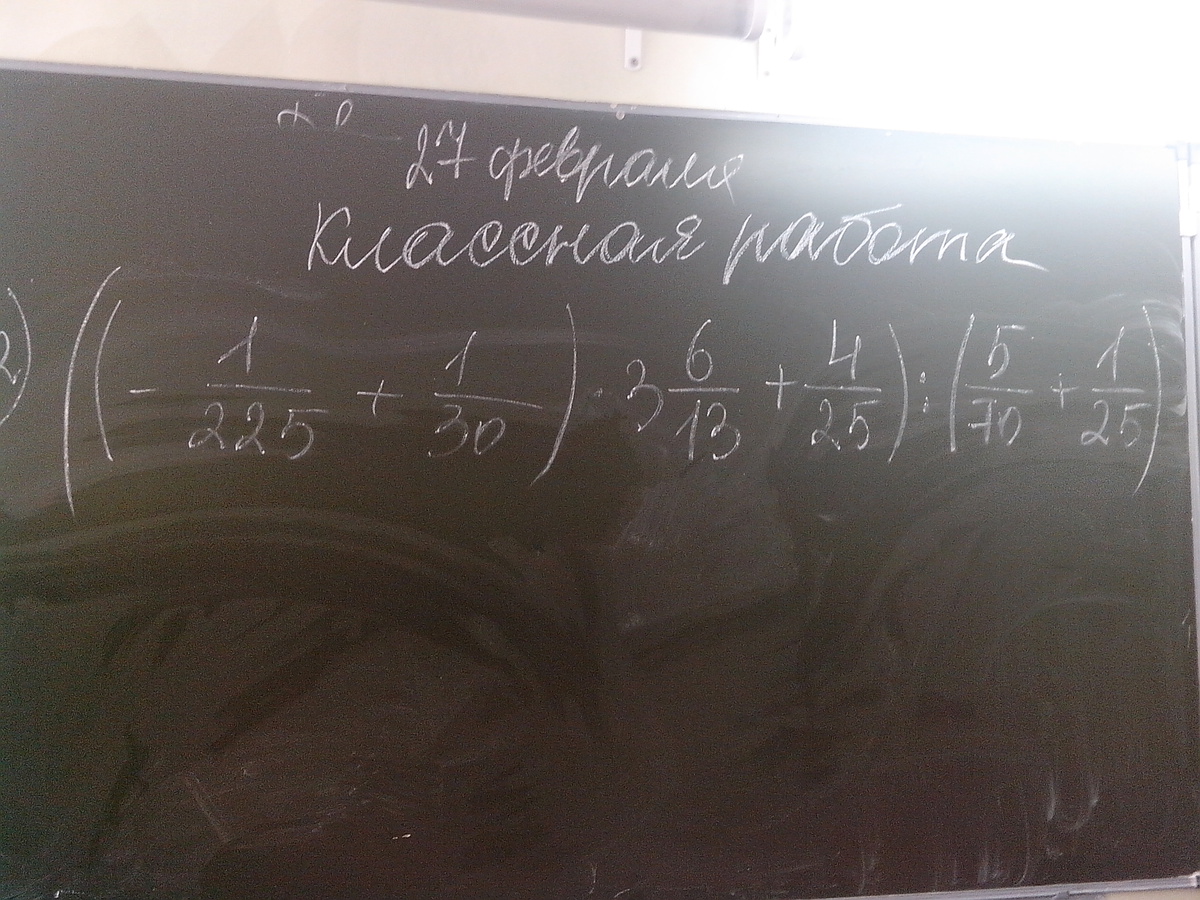 27 февраля
Классная работа
2) ((- 1/225 + 1/30) · 3 6/13 + 4/25) : (5/70 + 1/25)